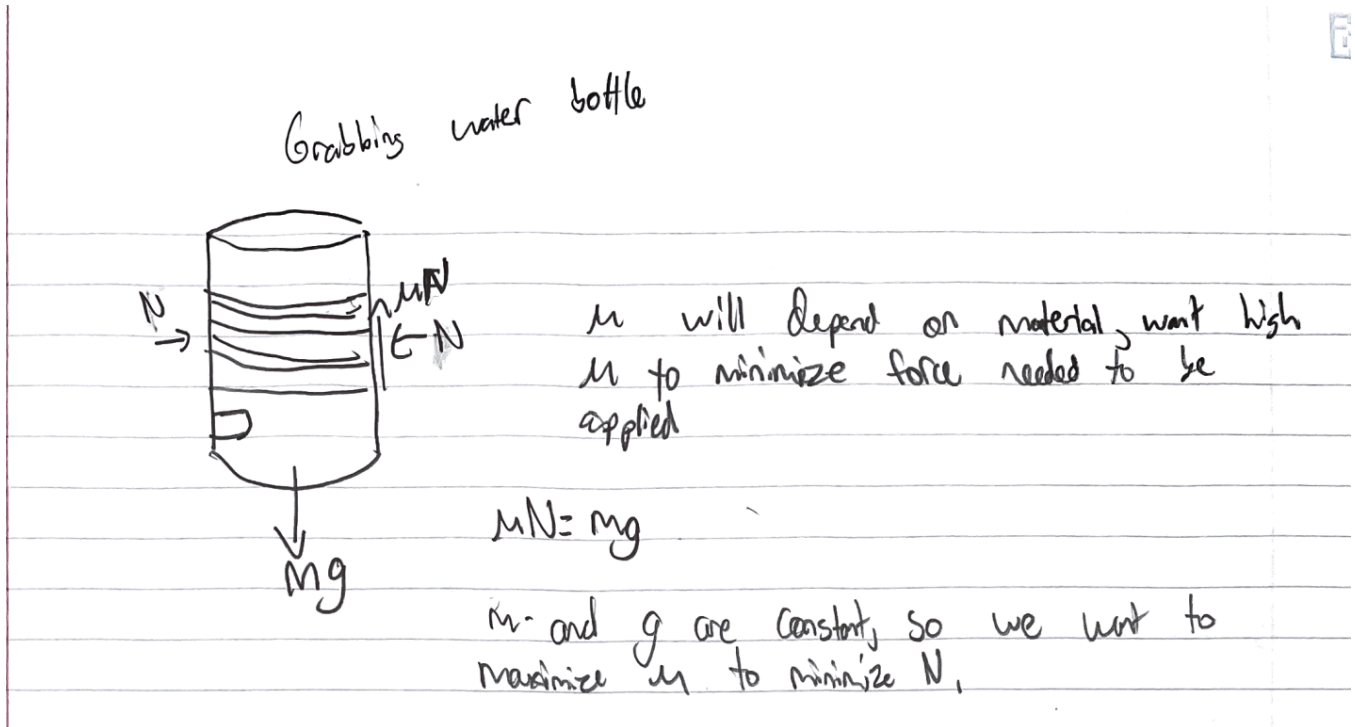 Grabbing water bottle
N
μN
N
μ will depend on material, want high
μ to minimize force needed to be
applied
μN = mg
mg
m and g are constant, so we want to
maximize μ to minimize N.